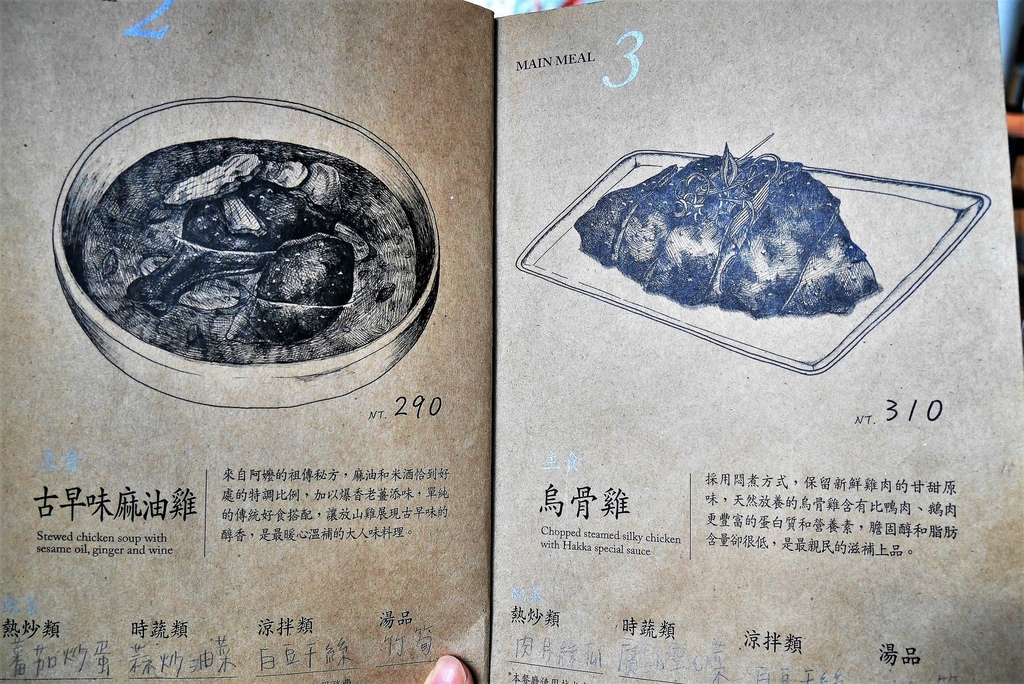 2
NT. 290
主食
古早味麻油雞
Stewed chicken soup with
sesame oil, ginger and wine
來自阿嬤的祖傳秘方，麻油和米酒恰到好
處的特調比例，加以爆香老薑添味，單純
的傳統好食搭配，讓放山雞展現古早味的
醇香，是最暖心溫補的大人味料理。
熱炒類
時蔬類
涼拌類
湯品
蕃茄炒蛋
蒜炒油菜
白豆干絲
竹筍
MAIN MEAL
3
NT. 310
主食
烏骨雞
Chopped steamed silky chicken
with Hakka special sauce
採用悶煮方式，保留新鮮雞肉的甘甜原
味，天然放養的烏骨雞含有比鴨肉、鵝肉
更豐富的蛋白質和營養素，膽固醇和脂肪
含量卻很低，是最親民的滋補上品。
熱炒類
時蔬類
涼拌類
湯品